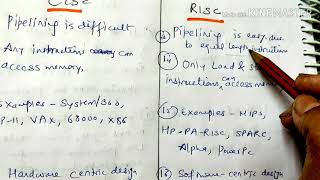 CISC
Pipelining is difficult
Any instructions can
access memory.
Examples - System/360,
P-11, VAX, 68000, x86
Hardware centric design
RISC
KINEMASTER
Pipelining is easy due
to equal length instructions
(14) Only Load &
instructions can access memory
(15) Examples - MIPS,
HP-PA-RISC, SPARC,
Alpha, PowerPC
(16) Software-centric design